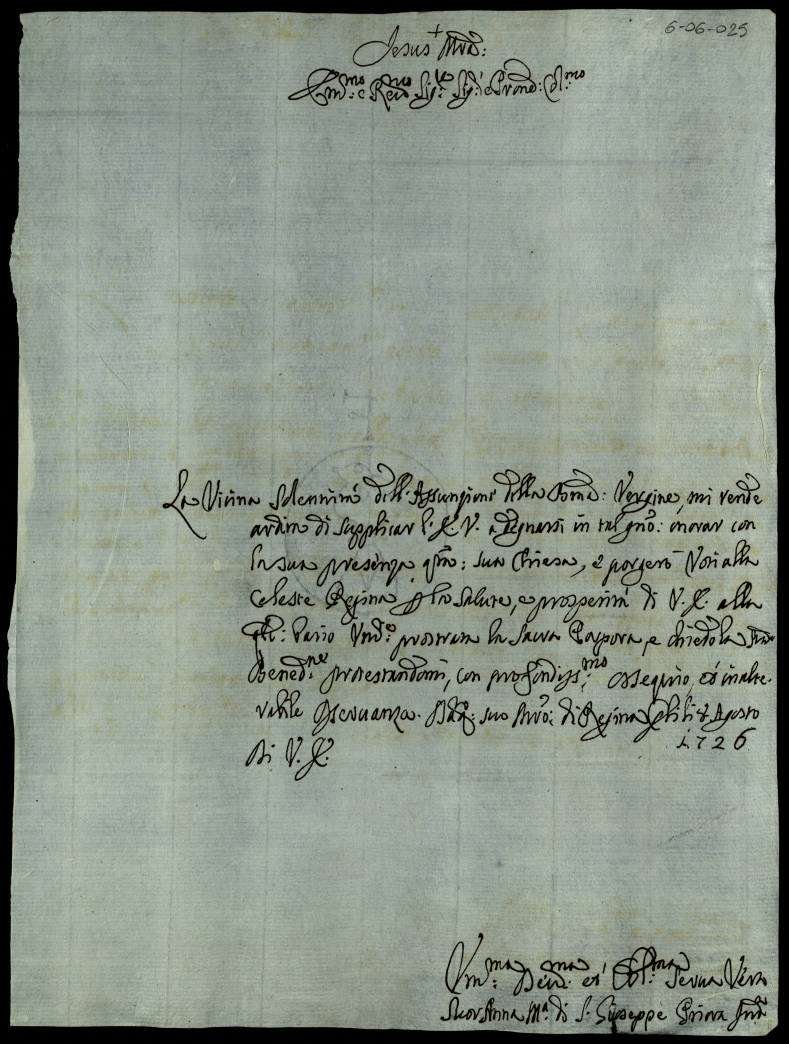 6-06-025
Jesus + Mra:
Em:mo e Revmo Sig:re Sig: e Prone: Col:mo
La Vicina Solennità dell'Assunzione della Bma: Vergine, mi rende
ardita di supplicar l'E. V. a degnarsi in tal gno: onorar con
la sua presenza qta: sua Chiesa, e porgerò Voti alla
Celeste Regina p la Salute, e prosperità di V. E. alla
qle: bacio Vmte prostrata la Sacra Porpora, e chiedo la Sta
Bened:ne protestandomi, con profondiss:mo ossequio, ed inalte-
rabile osservanza. Dal suo Mro: di Regina Celi li 8 Agosto
1726
Di V. E.
Vm:ma Dev:ma et Obl:ma Serva Vera
Suor Anna Ma: di S. Giuseppe Priora Inda